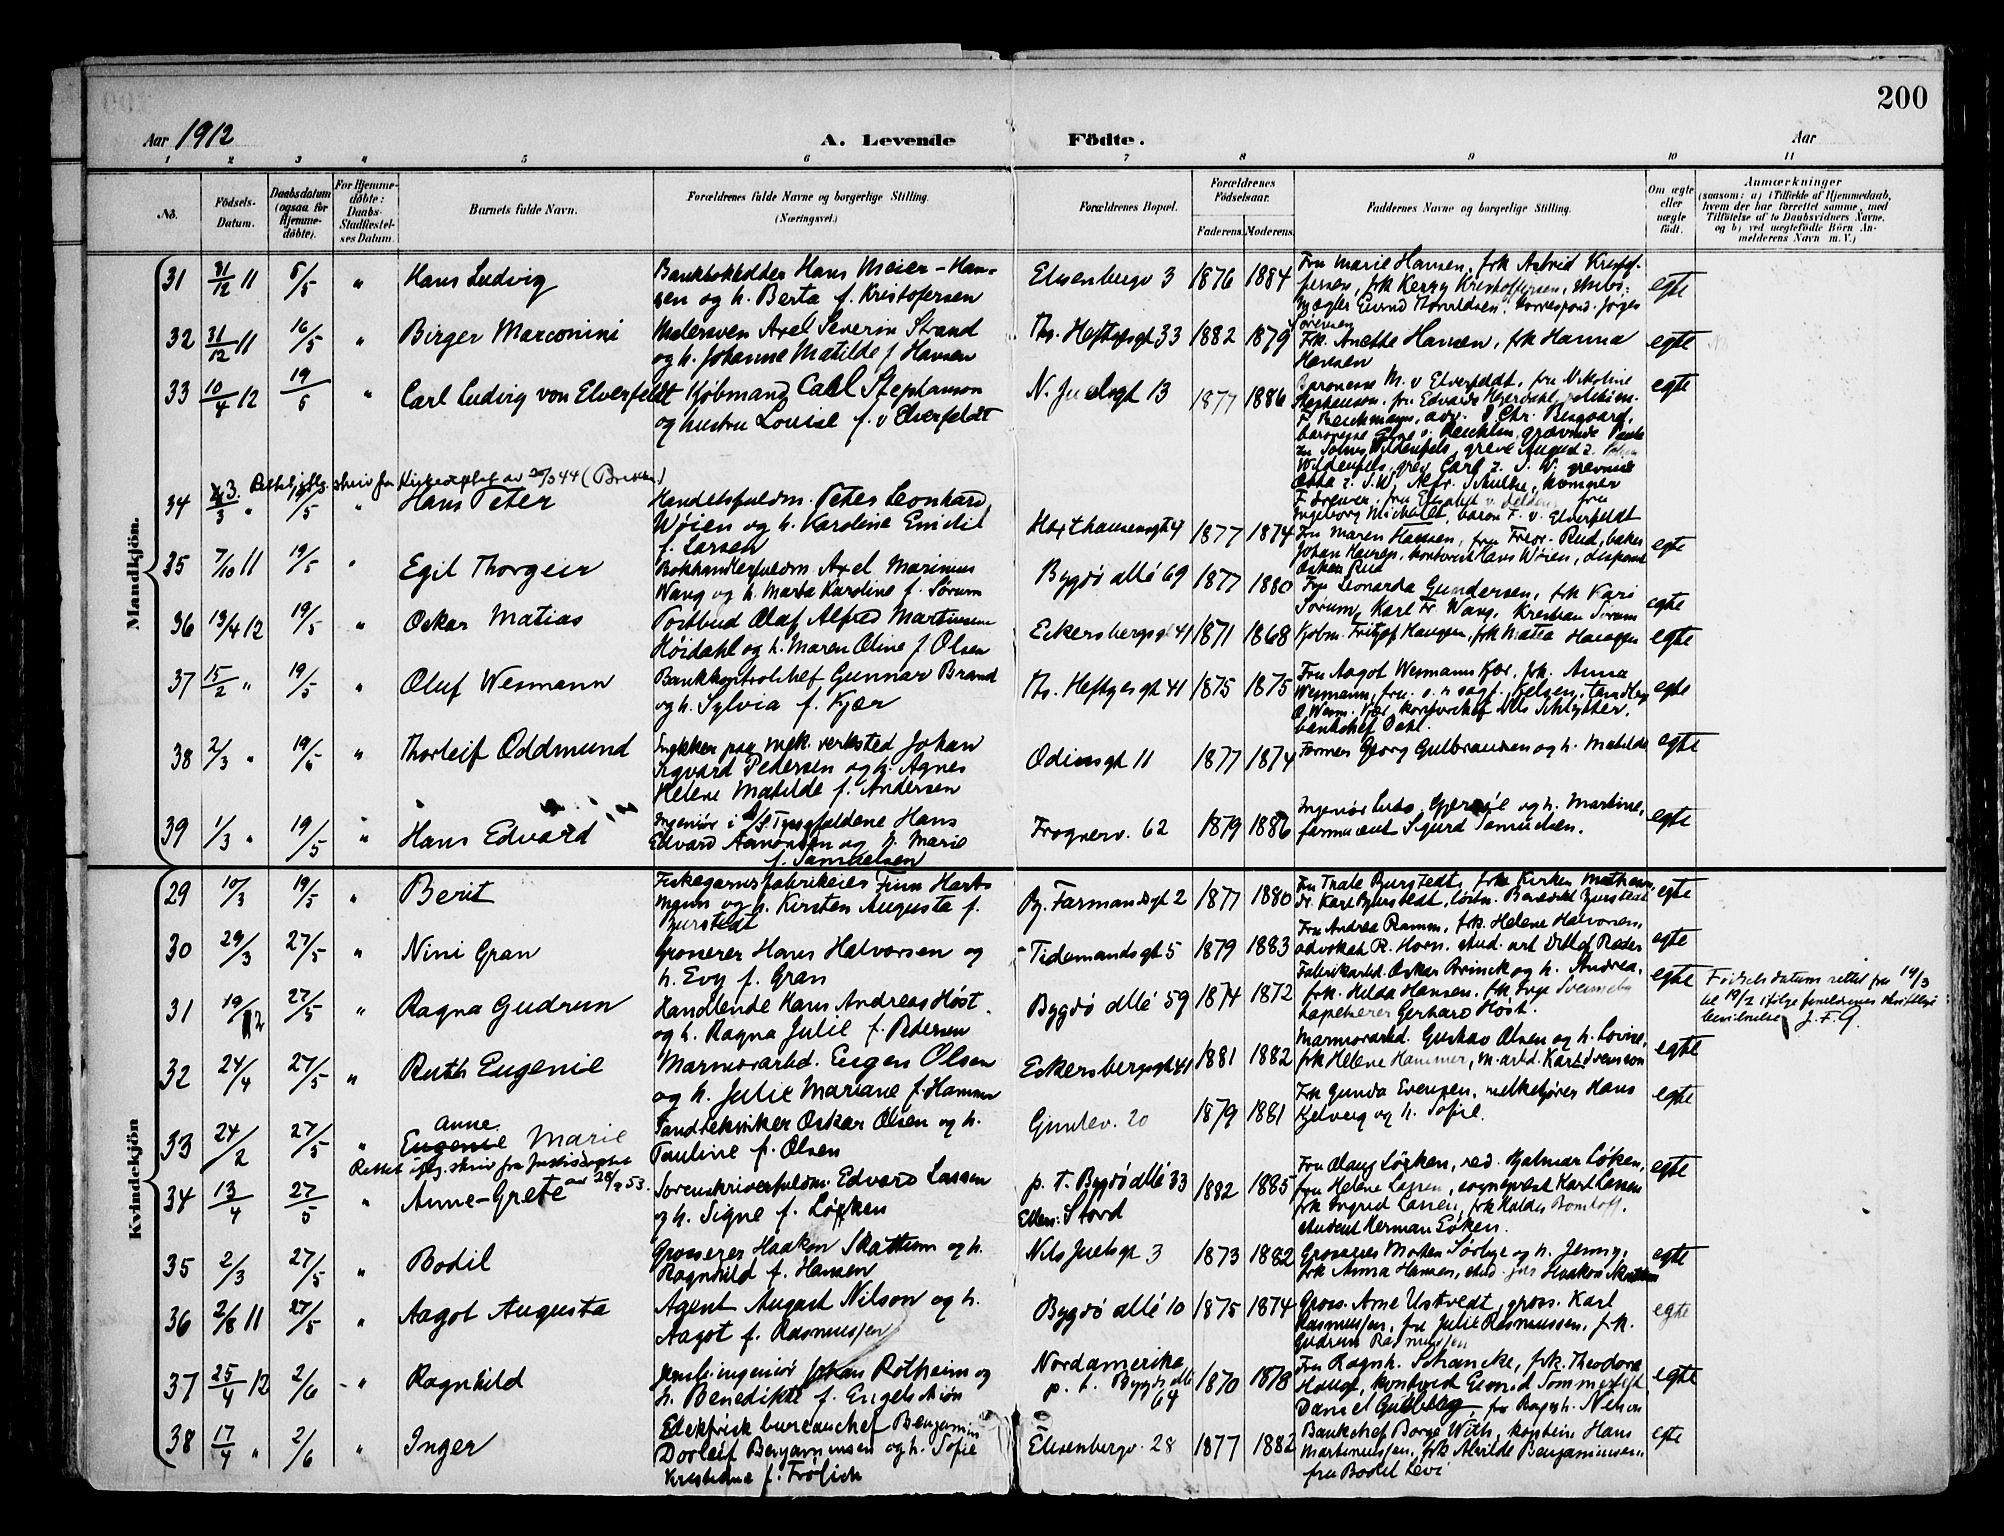 200
Aar 1912 A. Levende Födte. Aar
1 2 3 " 5 6 7 8 9 10 11
No. Födsels-Datum. Daabsdatum (ogsaa for Hjemme-döbte). For Hjemme-döbte: Daabs-Stadfestel-ses Datum. Barnets fulde Navn. Forældrenes fulde Navne og borgerlige Stilling. (Næringsvei.) Forældrenes Bopæl. Forældrenes Födselsaar. Faderens. Moderens. Faddernes Navne og borgerlige Stilling. Om ægte eller uægte födt. Anmærkninger (saasom: a) i Tilfælde af Hjemmedaab, hvem der har forrettet samme, med Tilföielse af to Daabsvidners Navne, og b) ved uægtefödte Börn An-melderens Navn m. V.)
Mandkjön.
31 31/12 11 5/5 " Hans Ludvig Bankbokholder Hans Meier-Han-
sen og h. Berta f. Kristofersen Elisenbergv 3 1876 1884 Fru Marie Hansen, frk Astrid Kristof-
fersen, frk Kerry Kristoffersen, skibs-
mægler Eivind Thorvldsen, korrespond. Jörgen
Sörensen egte
32 31/12 11 16/5 " Birger Marconini Malersven Axel Severin Strand
og h. Johanne Matilde f Hansen Th. Heftyesgt 33 1882 1879 Frk. Anette Hansen, frk Hanna
Hansen egte
33 10/4 12 19/5 " Carl Ludvig von Elverfeldt Kjöbmand Carl Stephanson
og hustru Louise f. v Elverfeldt N. Juelsgt 13 1877 1886 Baronesse M. v Elverfeldt, fru Nikoline
Stephanson. fru Edvarda
baronesse
Wildenfels, greve August z.
Wildenfels, grev Carl z. S. W. grevinne
fru
Ingeborg Michelet, baron F. v. Elverfeldt egte
Rettelse iflg. skriv fra Kirkedeptet av 20/3 44
34 "  /5 " Hans Peter Handelsfuldm. Peter Leonhard
Wøien og h. Karoline Emilie
f. Larsen Haxthausensgt 4 1877 1874 Fru Maren Hansen, fru Fredr. Rud, baker
Johan kontorist Hans Wøien,
Oskar Rud egte
35 7/10 11 19/5 " Egil Thorgeir Bokhandlerfuldm. Axel Marinius
Wang og h. Marta Karoline f. Sørum Bygdö allé 69 1877 1880 Fru Leonarda Gundersen, frk Kari
Sörum, Karl Fr Wang, Kristian Sörum egte
36 13/4 12 19/5 " Oskar Matias Postbud Olaf Alfred Martinsen
Høidahl og h. Maren Oline f Olsen Eckersbergsgt 41 1871 1868 Kjøbm. Fritjof Haugen, frk Matea Haugen egte
37 15/2 " 19/5 " Oluf Wesmann Bankkontrolchef Gunnar Brand
og h. Sylvia f. Kjær Th. Heftyesgt 41 1875 1875 Fru Aagot Wesmann Kjær, frk. Anna
Wesmann, fru o. r sagf. Nelsen, tandlæge
O Wesm. Kjær, kontorchef Nils Schlytter,
bankchef Dahl. egte
38 2/3 " 19/5 " Thorleif Oddmund Trykker paa mek. verksted Johan
Sigvard Pedersen og h. Agnes
Helene Matilde f. Andersen Odinsgt 11 1877 1874 Former Georg Gulbrandsen og h. Matilde egte
39 1/3 " 19/5 " Hans Edvard Ingeniør i A/S Tyssefaldene Hans
Edvard Aanonsen og h. Marie
f. Samuelsen Frognerv. 62 1879 1886 Ingeniør Ludv. og h. Martine,
farmaceut Sigurd Samuelsen. egte
Kvindekjön
29 10/3 19/5 " Berit Fiskegarnsfabrikeier Finn Hart-
mann og h. Kirsten Augusta f.
Bjurstedt By. Farmandsgt 2 1877 1880 Fru Thale Bjurstedt, frk Kirken Mathesen,
Dr. Karl Bjurstedt, løitn. Benedikt Bjurstedt egte
30 29/3 27/5 " Nini Gran Grosserer Hans Halvorsen og
h. Evy f. Gran Tidemandsgt 5 1879 1883 Fru Andrea Ramm, frk. Helene Halvorsen,
advokat R. Horn, stud. art Ditlef Reder egte
31 19/12 27/5 " Ragna Gudrun Handlende Hans Andreas Høst
og h. Ragna Julie f. Petersen Bygdö allé 59 1874 1872 Fabrikarbd. Oskar Brinck og h. Andrea,
frk. Hilda Hansen, frk Inga
tapetserer Gerhard Höst. egte Fødselsdatum rettet fra 14/3
til 19/2 ifølge foreldrenes skriftlige
bevidnelse J. F. G.
32 24/4 27/5 " Ruth Eugenie Marmorarbd. Eugen Olsen
og h. Julie Mariane f. Hammer Eckersbergsgt 41 1881 1882 Marmorarbd. Gustav Olsen og h. Lovise,
frk Helene Hammer, m.arbd. Karl Svenson egte
33 24/2 27/5 " Anne
Eugenie Marie Tandtekniker Oskar Olsen og h.
Pauline f. Olsen Gimlev. 20 1879 1881 Frk Gunda Evensen, melkekjører Hans
Kjelberg og h. Sofie. egte
Rettet iflg. skriv fra Justisdeptet
av 28/2 53.
34 13/4 27/5 " Anne-Grete Sorenskriverfuldm. Edvard Lassen
og h. Signe f. Løken p. t. Bygdö allé 33
Ellers: Stord 1882 1885 Fru Olaug Løken, red. Hjalmar Løken,
fru Helene Lassen, sogneprest Karl Lassen
frk Ingrid Lassen, frk Haldis Bomhoff,
student Herman Löken. egte
35 2/3 27/5 " Bodil Grosserer Haakon Skattum og h.
Ragnhild f. Hansen Nils Juelsgt 3 1873 1882 Grosserer Morten Sørbye og h. Jenny,
frk Anna Hansen, stud. jur Haakon Skattum egte
36 2/8 11 27/5 " Aagot Augusta Agent August Nilson og h.
Aagot f. Rasmussen Bygdö allé 10 1875 1874 Gross. Arne Ustvedt, gross. Karl
Rasmussen, fru Julie Rasmussen, frk.
Gudrun Rasmussen egte
37 25/4 12 2/6 - " Ragnhild ingeniør Johan Rotheim og
h. Benedikte f. Engelschiøn Nordamerika
p. t. Bygdö allé
64 1870 1878 Fru Ragnh. Schancke, frk. Theodora
Hauge, kontorist Sommerfelt
Daniel fru Ragnh. Nelson egte
38 17/4 " 2/6 " Inger Elektrisk bureauchef Benjamin
Dorleif Benjaminsen og h. Sofie
Kristiane f. Frölich Elisenbergv. 28 1877 1882 Bankchef Börge With, kaptein Hans
Martinussen, frk Alvilde Benjaminsen,
fru Bodil Levi egte